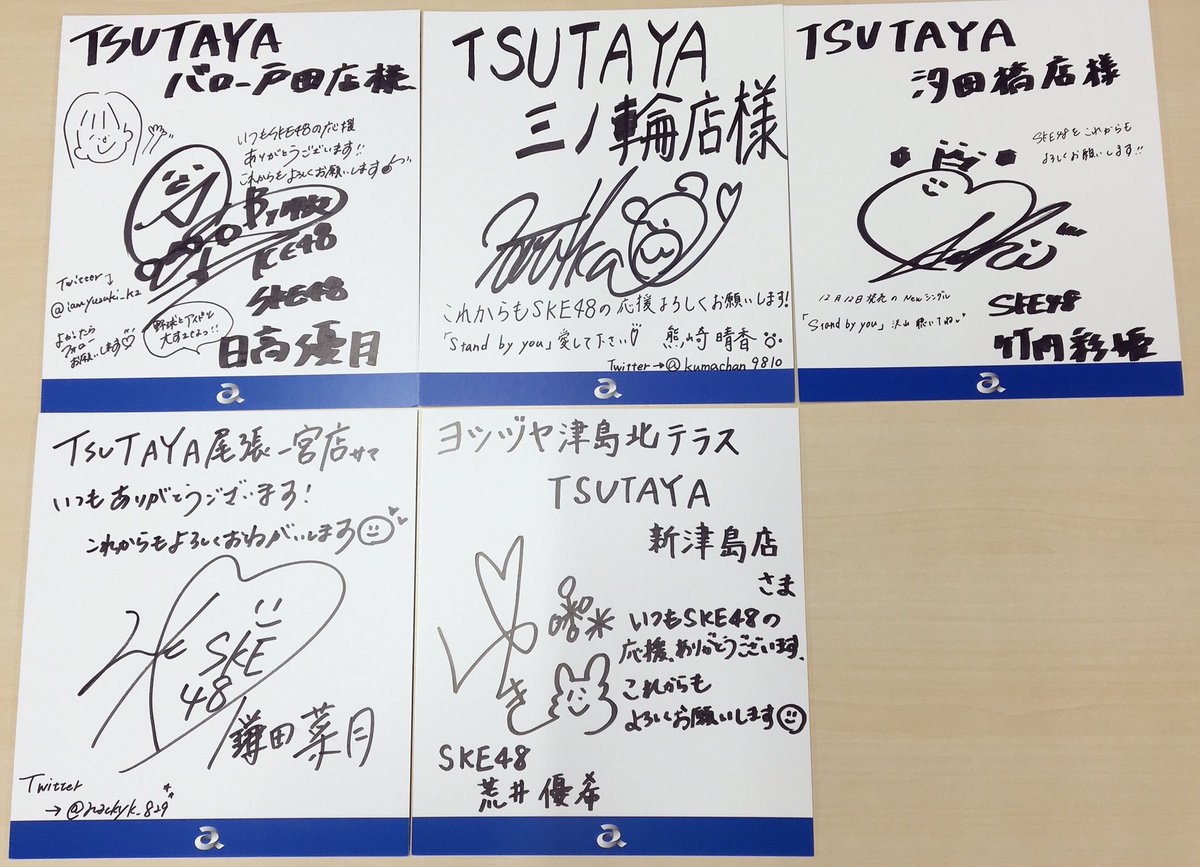 TSUTAYA
バロー戸田店様
いつもSKE48の応援
ありがとうございます!!
これからもよろしくお願いします
SKE48
SKE48
Twitter
よかったら
フォロー
お願いします♡
野球と
大すきです!!
日高優月
a
TSUTAYA
三ノ輪店様
Haruka
これからもSKE48の応援よろしくお願いします!
「Stand by you」愛して下さい 熊崎晴香
Twitter→@kumachan9810
a
TSUTAYA
汐田橋店様
SKE48をこれからも
よろしくお願いします!!
12月12日発売のNewシングル
「Stand by you」沢山聴いてね
SKE48
竹内彩姫
a
TSUTAYA尾張一宮店サマ
いつもありがとうございます!
これからもよろしくおねがいします
SKE
48
鎌田菜月
Twitter
→@nackyk_829
a
ヨシヅヤ津島北テラス
TSUTAYA
新津島店
さま
いつもSKE48の
応援、ありがとうございます。
これからも
よろしくお願いします
ゆき
SKE48
荒井優希
a